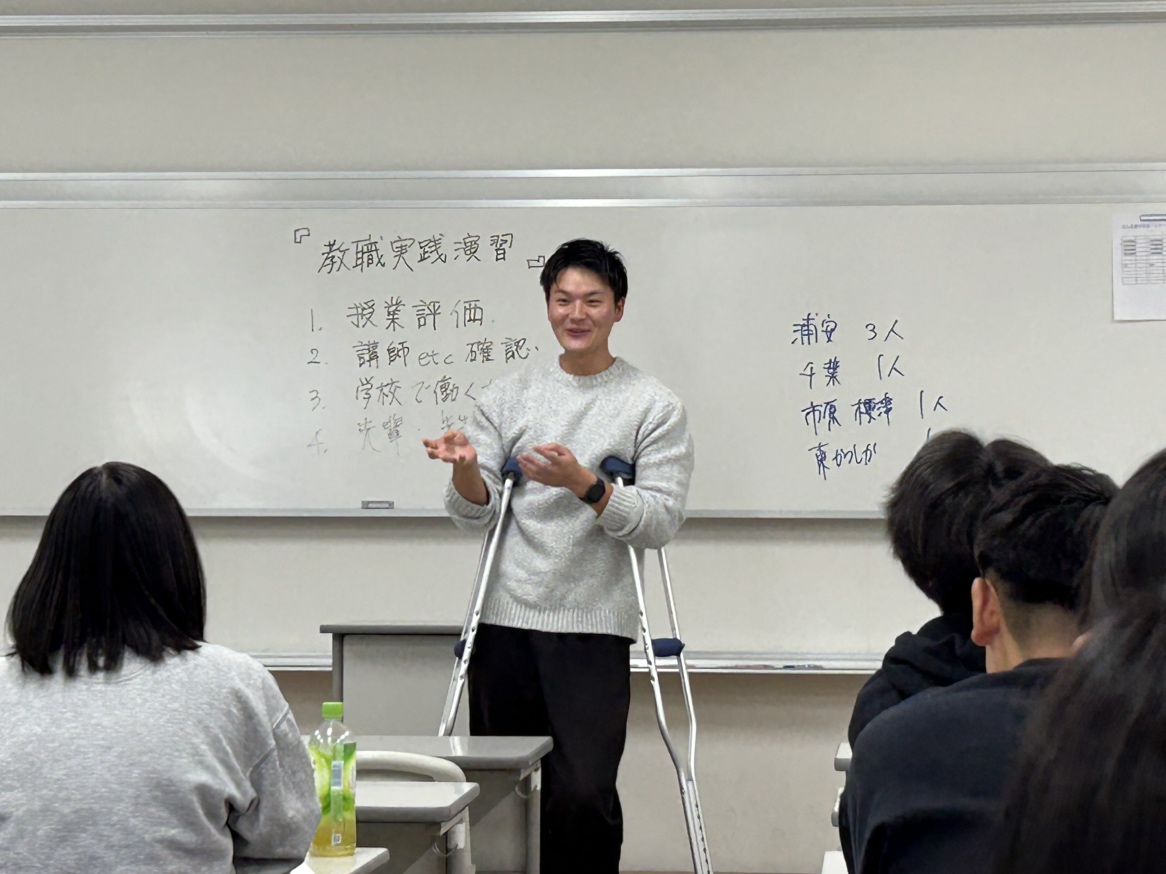 『教職実践演習』
1. 授業評価
2. 講師etc確認
3. 学校で働く
4. 先輩・
浦安 3人
千葉 1人
市原 標準 1人
東かつしか